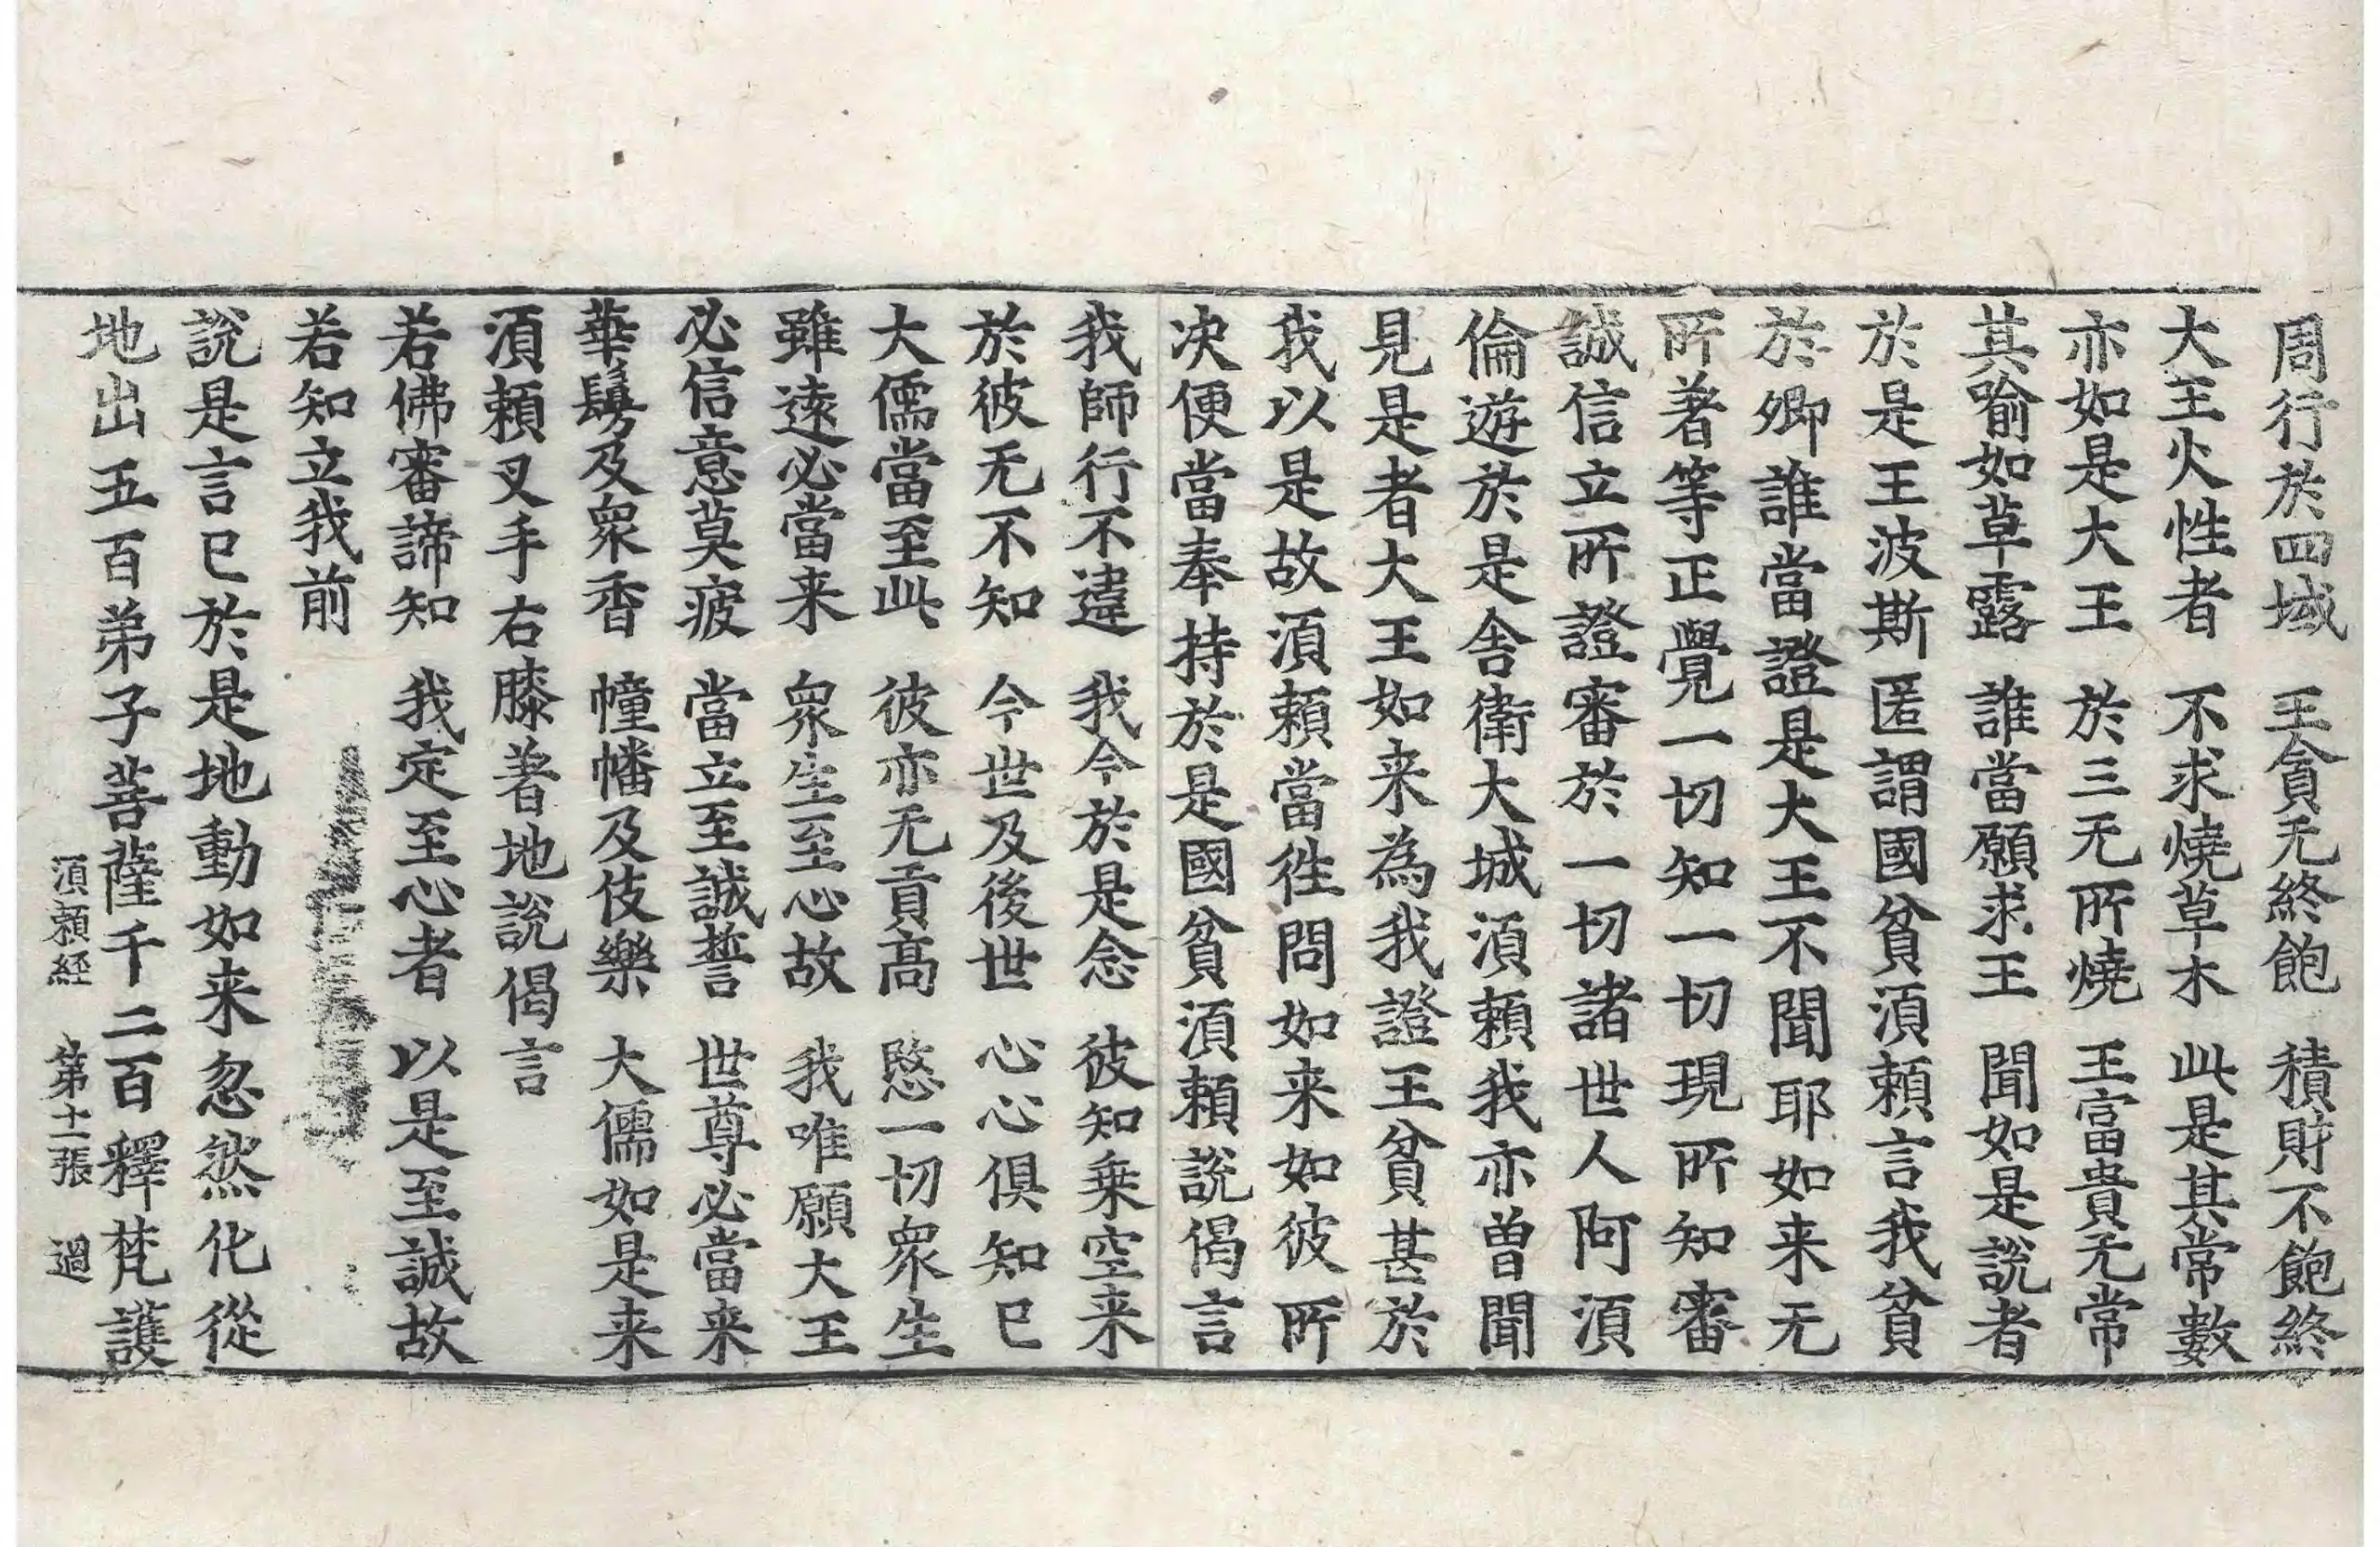 周行於四域　王貪无終飽　積財不飽終
大王火性者　不求燒草木　此是其常數
亦如是大王　於三无所燒　王富貴无常
其喻如草露　誰當願求王　聞如是說者
於是王波斯匿謂國貧須賴言我貧
於卿誰當證是大王不聞耶如来无
所著等正覺一切知一切現所知審
誠信立所證審於一切諸世人阿須
倫遊於是舍衛大城須賴我亦曽聞
見是者大王如来為我證王貧甚於
我以是故須賴當徃問如来如彼所
决便當奉持於是國貧須賴說偈言
我師行不違　我今於是念　彼知乗空来
於彼无不知　今世及後世　心心俱知已
大儒當至此　彼亦无貢高　愍一切衆生
雖逺必當来　衆生至心故　我唯願大王
必信意莫疲　當立至誠誓　世尊必當来
華鬘及衆香　幢幡及伎樂　大儒如是来
須賴叉手右膝著地說偈言
若佛審諦知　我定至心者　以是至誠故
若知立我前
說是言已於是地動如来忽然化從
地出五百弟子菩薩千二百釋梵護
須賴經　第十一張　過